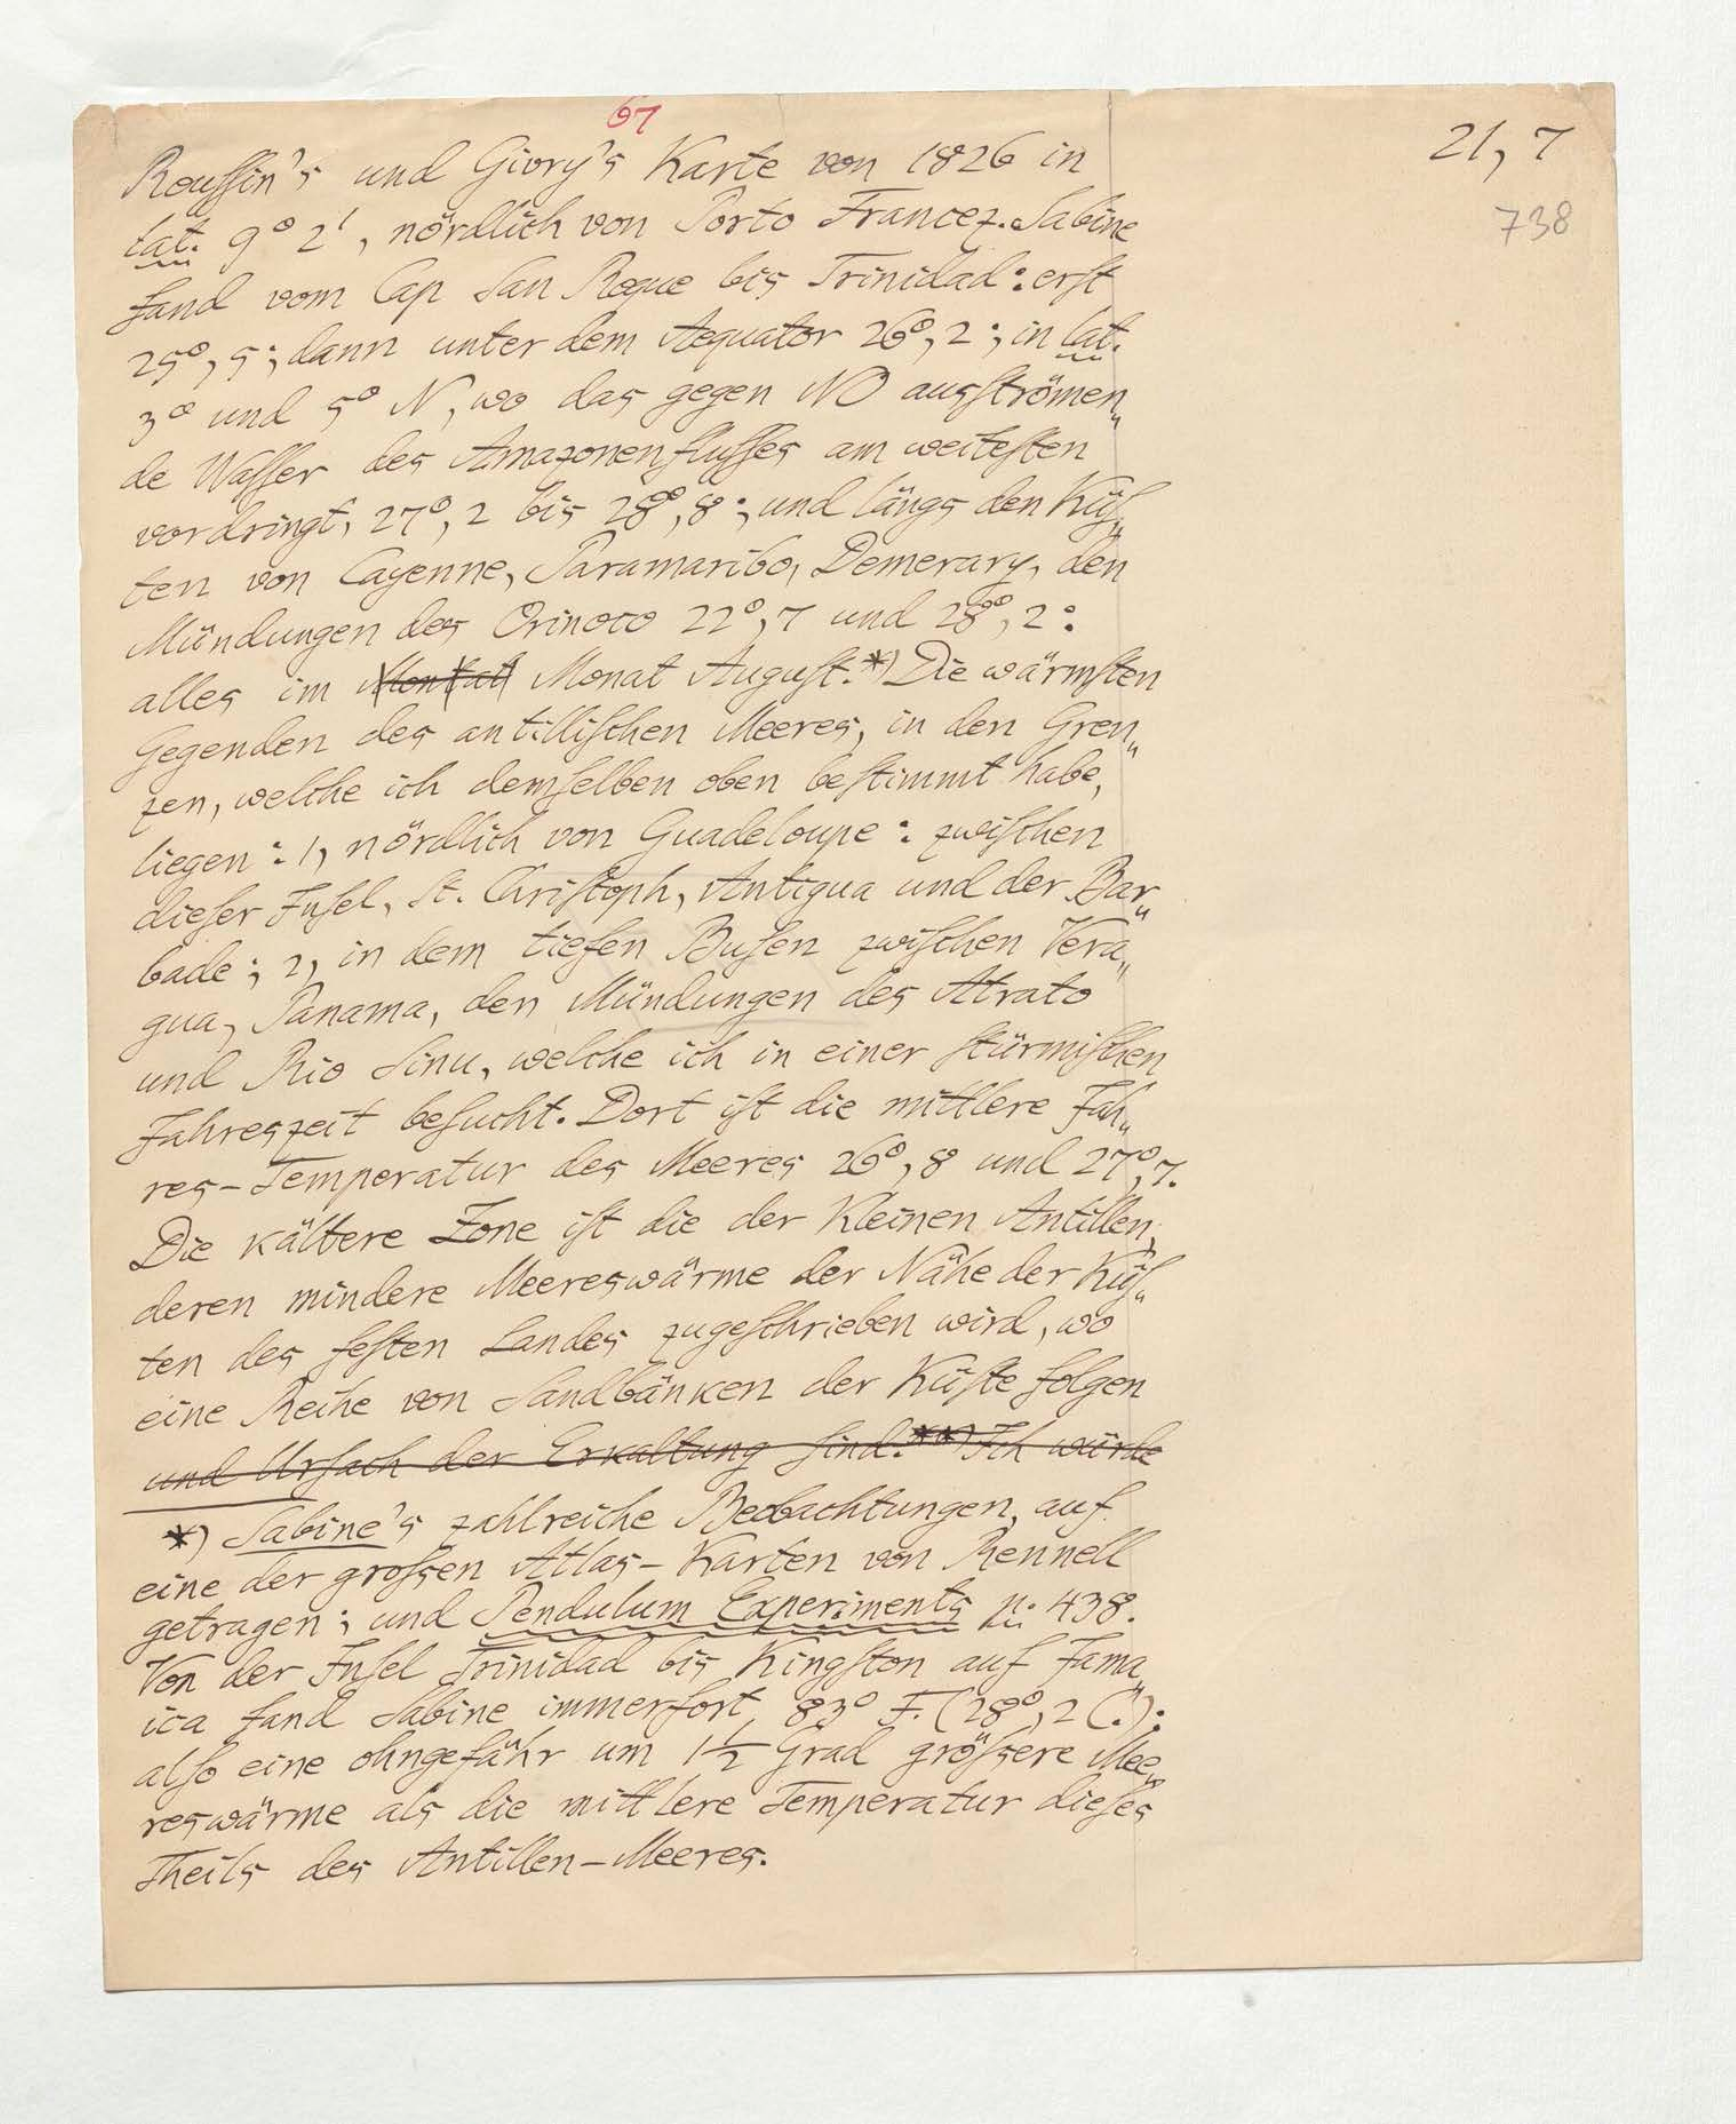 67
21, 7
738
Rouſſin's und Givry's Karte von 1826 in
lat. 9° 2', nördlich von Porto Francez. Sabine
fand vom Cap San Roque bis Trinidad: erſt
25°, 5; dann unter dem Aequator 26°, 2; in lat.
3° und 5° N, wo das gegen NO ausſtrömen„
de Waſſer des Amazonenfluſſes am weiteſten
vordringt, 27°, 2 bis 28°, 8; und längs den Küſ„
ten von Cayenne, Paramaribo, Demerary, den
Mündungen des Orinoco 22°, 7 und 28°, 2:
alles im Monat Auguſt.*) Die wärmſten
Gegenden des antilliſchen Meeres, in den Gren„
zen, welche ich demſelben oben beſtimmt habe,
liegen: 1, nördlich von Guadeloupe: zwiſchen
dieſer Inſel, St. Chriſtoph, Antigua und der Bar„
bade; 2, in dem tiefen Buſen zwiſchen Vera„
gua, Panama, den Mündungen des Atrato
und Rio Sinu, welche ich in einer ſtürmiſchen
Jahreszeit beſucht. Dort iſt die mittlere Jah„
res-Temperatur des Meeres 26°, 8 und 27°, 7.
Die kältere Zone iſt die der Kleinen Antillen,
deren mindere Meereswärme der Nähe der Küſ„
ten des feſten Landes zugeſchrieben wird, wo
eine Reihe von Sandbänken der Küſte folgen
und Urſach der Erkaltung ſind.**) Ich würde
*) Sabine's zahlreiche Beobachtungen, auf
eine der groſsen Atlas-Karten von Rennell
getragen; und Pendulum Experiments p. 438.
Von der Inſel Trinidad bis Kingſton auf Jama„
ica fand Sabine immerfort 83° F. (28°, 2 C.):
alſo eine ohngefähr um 1 1/2 Grad gröſsere Mee„
reswärme als die mittlere Temperatur dieſes
Theils des Antillen-Meeres.